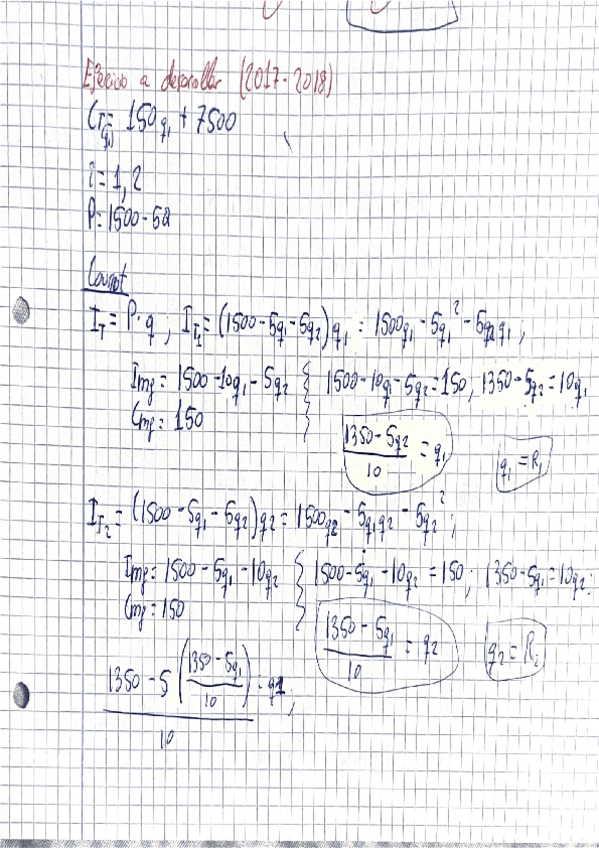 Ejercicio a desarrollar (2017-2018)
CT(qi)= 150qi + 7500
i = 1, 2
P= 1500 - 5Q
Cournot
IT = P·q ; IT1 = (1500 - 5q1 - 5q2)q1 = 1500q1 - 5q1² - 5q2q1 ;
Img = 1500 - 10q1 - 5q2 1500 - 10q1 - 5q2 = 150; 1350 - 5q2 = 10q1
Cmg = 150
(1350 - 5q2)/10 = q1 q1 = R1
IT2 = (1500 - 5q1 - 5q2)q2 = 1500q2 - 5q1q2 - 5q2² ;
Img = 1500 - 5q1 - 10q2 1500 - 5q1 - 10q2 = 150; 1350 - 5q1 = 10q2;
Cmg = 150
(1350 - 5q1)/10 = q2 q2 = R2
(1350 - 5((1350 - 5q1)/10))/10 = q1;